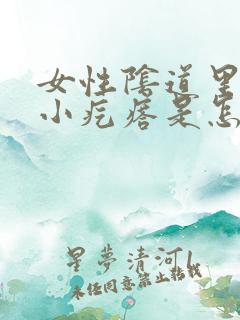 女性陰道里
小疙瘩是怎
星夢清河l
未经同意禁止转载